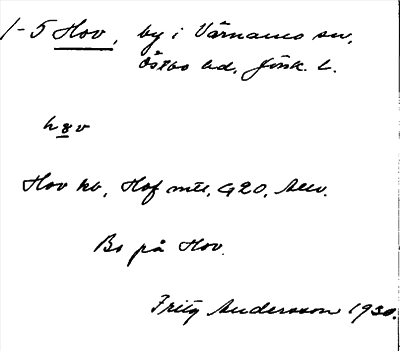 1-5 Hov, by i Värnamo sn,
Östbo hd, Jönk. l.
hov
Hov kb, Hof mtl, G20, Allm.
Bo på Hov.
Fritz Andersson 1930.